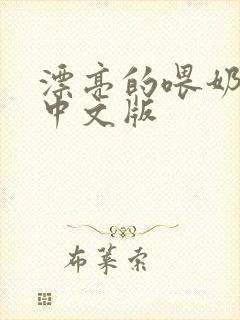 漂亮的喂奶
中文版
布莱索